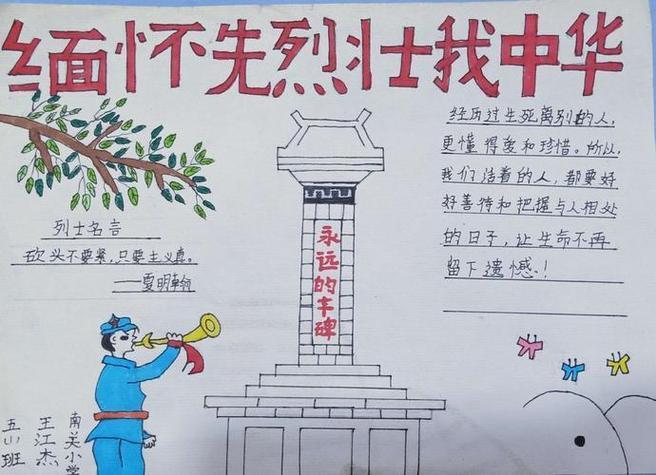 缅怀先烈壮我中华
经历过生死离别的人,
更懂得爱和珍惜。所以,
我们活着的人,都要好
好善待和把握与人相处
的日子,让生命不再
留下遗憾!
烈士名言
砍头不要紧,只要主义真。
——夏明翰
永远的丰碑
南关小学
王江杰
五(1)班